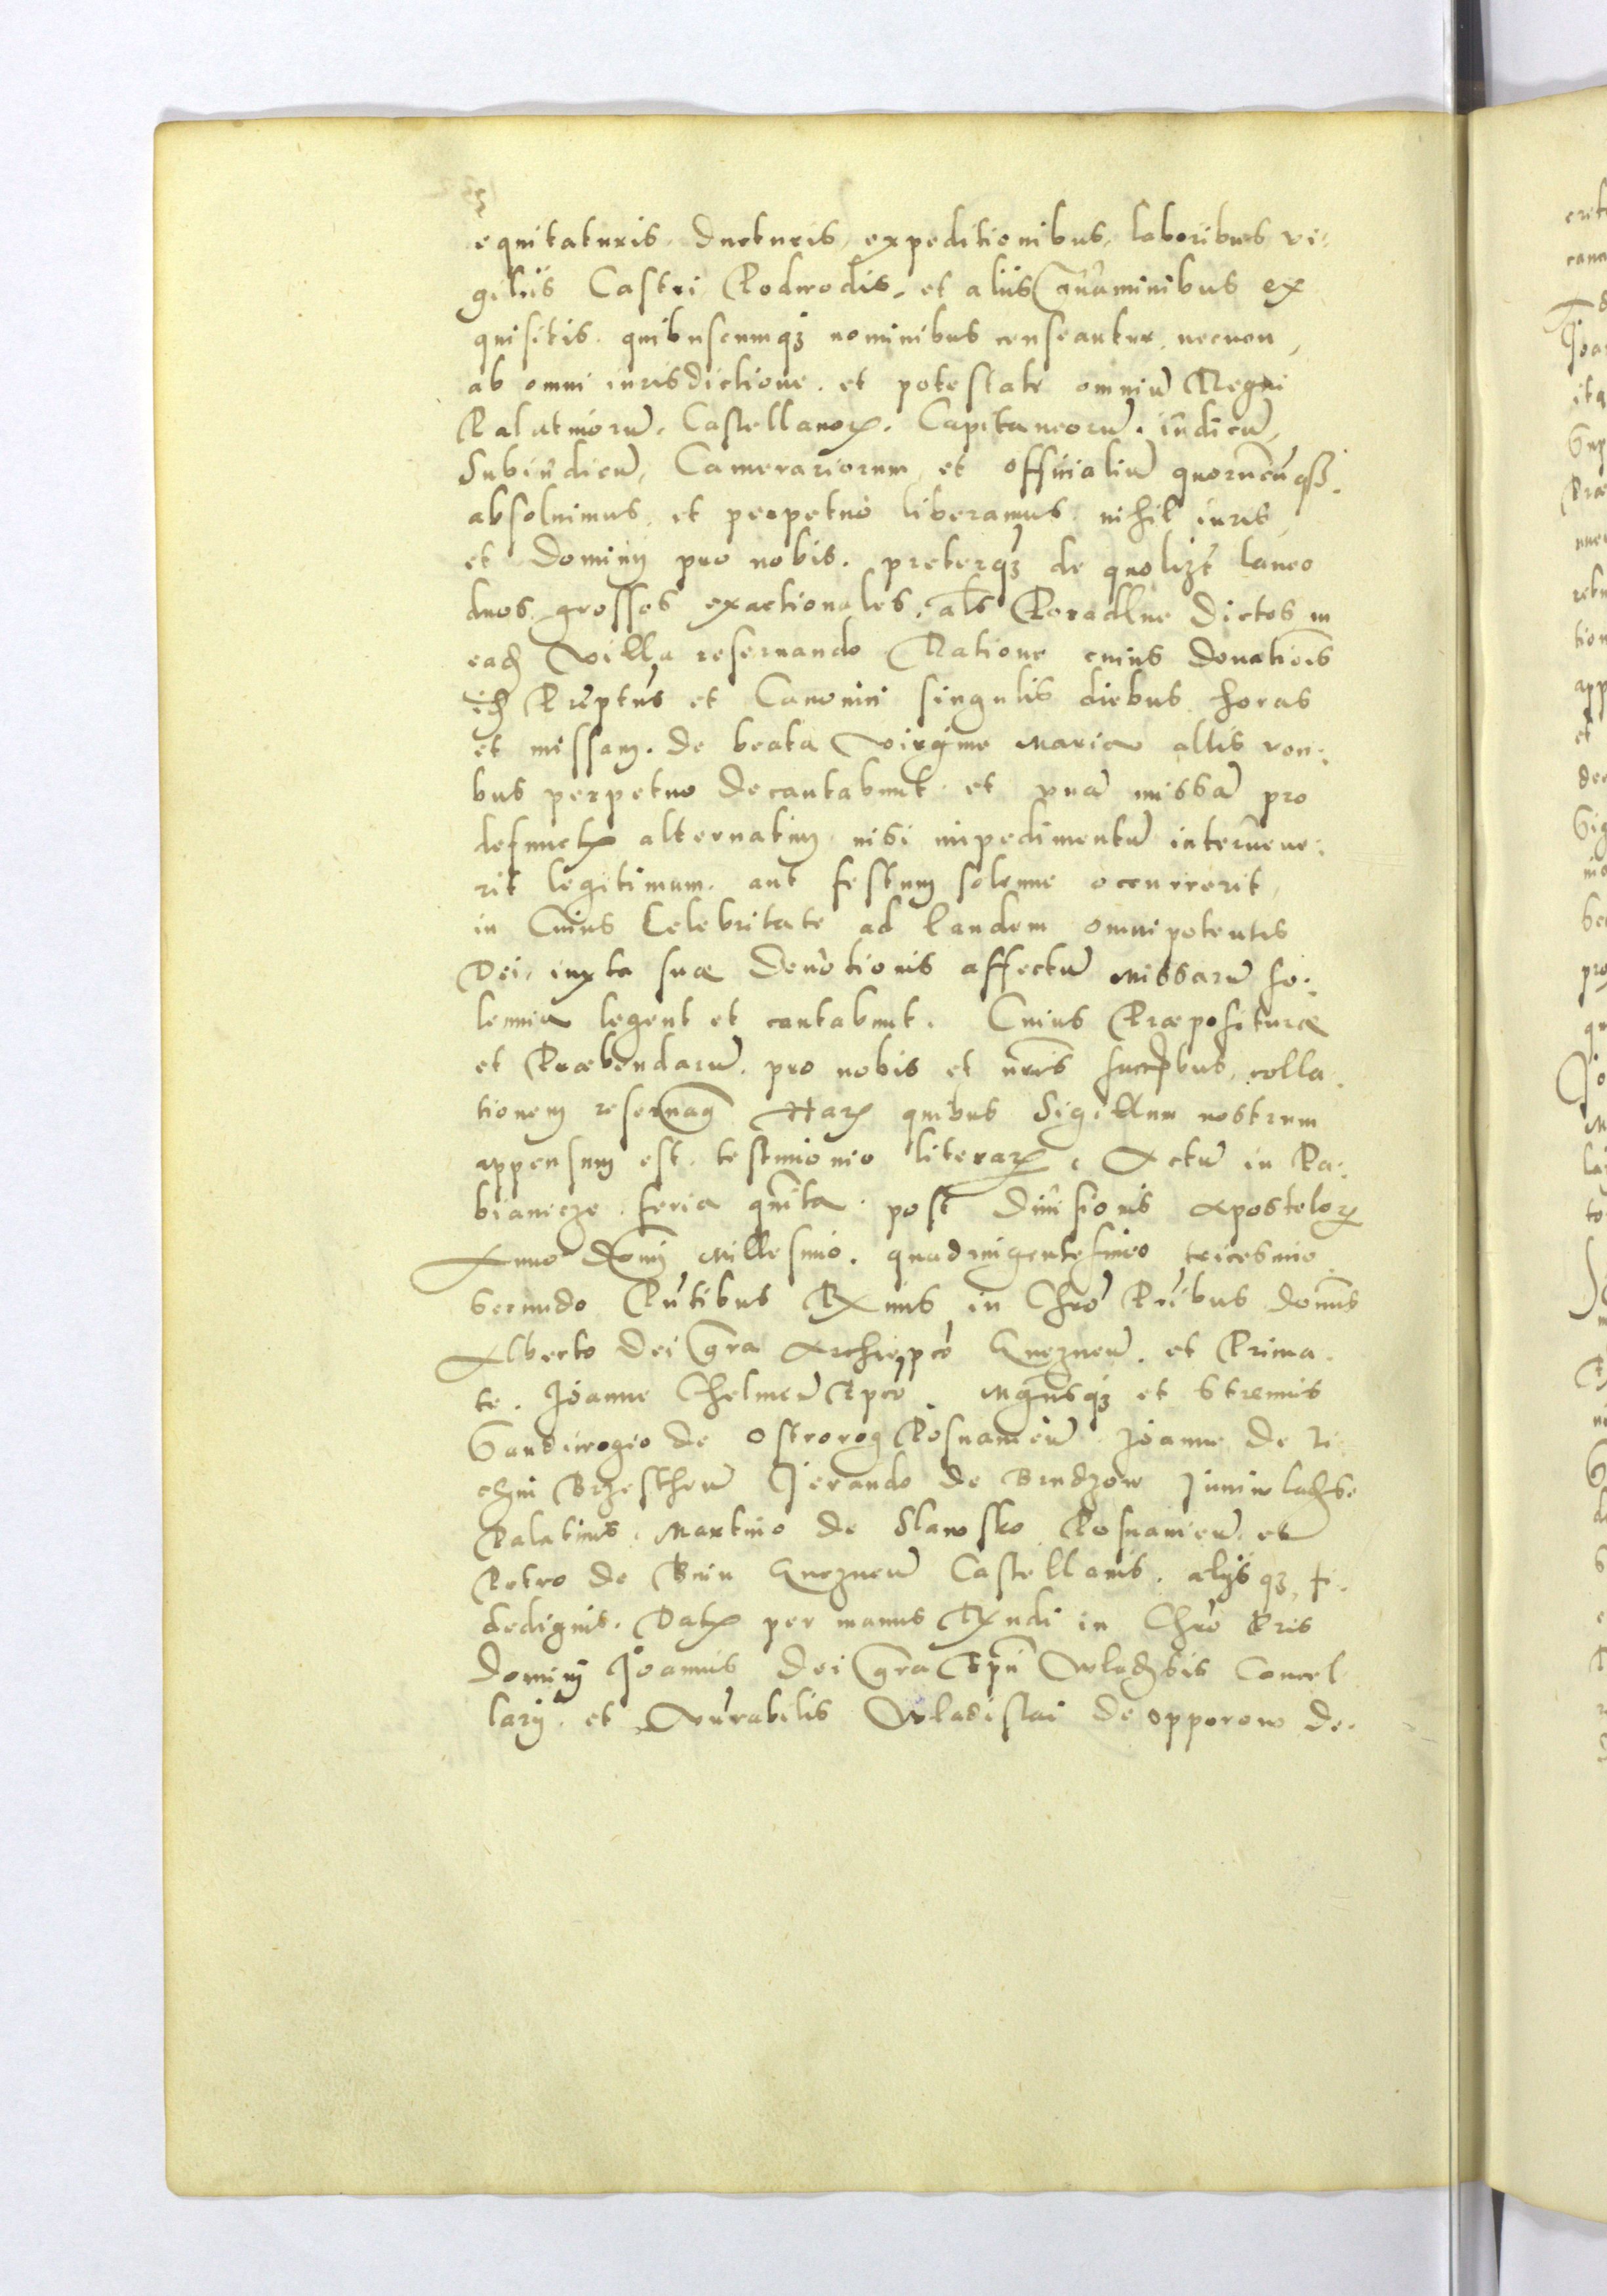 equitaturis, ducturis, expeditionibus, laboribus vi-
gilijs Castri Podwodis, et alijs grãminibus ex
quisitis quibuscumq3 nominibus censeantur, necnon,
ab omni iurisdictione et potestate omniũ Regni
Palatinorũ, Castellanoꝝ, Capitaneorũ, iudicũ,
Subiudicũ, Camerariorum et officialiũ quorũcũqȝ
absoluimus, et perpetuo liberamus nihil iuris
et dominij pro nobis, preterqȝ de quolibet laneo
duos grossos exactionales, als Poradlne dictos in
eadȝ villa reseruando Ratione cuius donatiõis
idȝ Prẽptus et Canonici singulis diebus horas
et missam de beata virgine Maria altis voci:
bus perpetuo decantabunt et vnã missã pro
defunctꝭ alternatim nisi impedimentũ interuene:
rit legitimum, aut festum solenne occurrerit,
in Cuius Celebritate ad laudem omnipotentis
Dei, iuxta suæ deuotionis affectũ Missarũ so:
lennia legent et cantabunt. Cuius Præpositurae
et Præbendarũ pro nobis et nr̃is succ̃bus, colla
tionem reseruamꝰ Harꝝ quibus Sigillum nostrum
appensum est, testimonio literarꝝ, Actũ in Pa:
bianicze feria quinta post diuisionis Apostoloꝝ
Anno Domĩ Millesimo quadringentesimo tricesimo
secundo Pñtibus Rx̃mis in Chr̃o Pr̃ibus Dominis
Alberto Dei gr̃a Archiep̃co Gneznen̄. et Prima
te. Joanne Chelmen̄ Ep̃co. Mgñisqȝ et Strennis
Sandiuogio de Ostrorog Posnanien̄ Joanne de Li
chin Brzesthen̄ Jerando de Brudzow Juniwladȝs.
Palatinis, Martino de Slawsko Posnanien̄ et
Petro de Bnin Gneznen̄ Castellanis, alijsqȝ fi:
dedignis. Datꝭ per manus Rx̃ndi in Chr̃o Pr̃is
Domini Joannis Dei gr̃a Ep̃i Wladȝsis Cancel
larij, et Vñrabilis Wladislai de Opporow De-